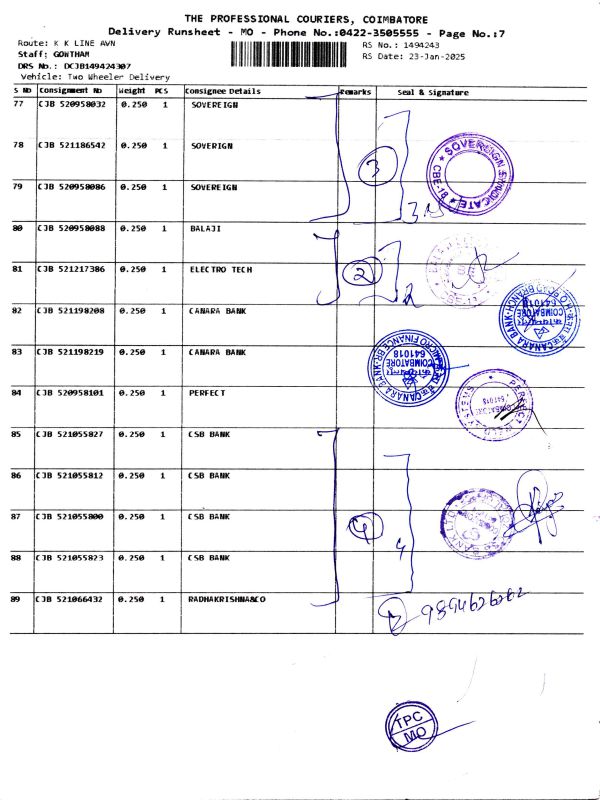 THE PROFESSIONAL COURIERS, COIMBATORE
Delivery Runsheet - MO - Phone No.:0422-3505555 - Page No.:7
Route: K K LINE AVN
Staff: GOWTHAM
DRS No.: DCJB149424307
Vehicle: Two Wheeler Delivery
RS No.: 1494243
RS Date: 23-Jan-2025
S No Consignment No Weight PCS Consignee Details Remarks Seal & Signature
77 CJB 520958032 0.250 1 SOVEREIGN
78 CJB 521186542 0.250 1 SOVERIGN
3
SOVEREIGN SYNDICATE
CBE-18
79 CJB 520958086 0.250 1 SOVEREIGN
80 CJB 520958088 0.250 1 BALAJI
81 CJB 521217386 0.250 1 ELECTRO TECH
2
2
82 CJB 521198208 0.250 1 CANARA BANK
CANARA BANK
COIMBATORE
641018
83 CJB 521198219 0.250 1 CANARA BANK
CANARA BANK MICRO FINANCE BR
COIMBATORE
641018
84 CJB 520958101 0.250 1 PERFECT
PERFECT
SYSTEMS
641018
85 CJB 521055827 0.250 1 CSB BANK
86 CJB 521055812 0.250 1 CSB BANK
87 CJB 521055800 0.250 1 CSB BANK
4
4
BANK LTD
88 CJB 521055823 0.250 1 CSB BANK
89 CJB 521066432 0.250 1 RADHAKRISHNA&CO
TPC
MO